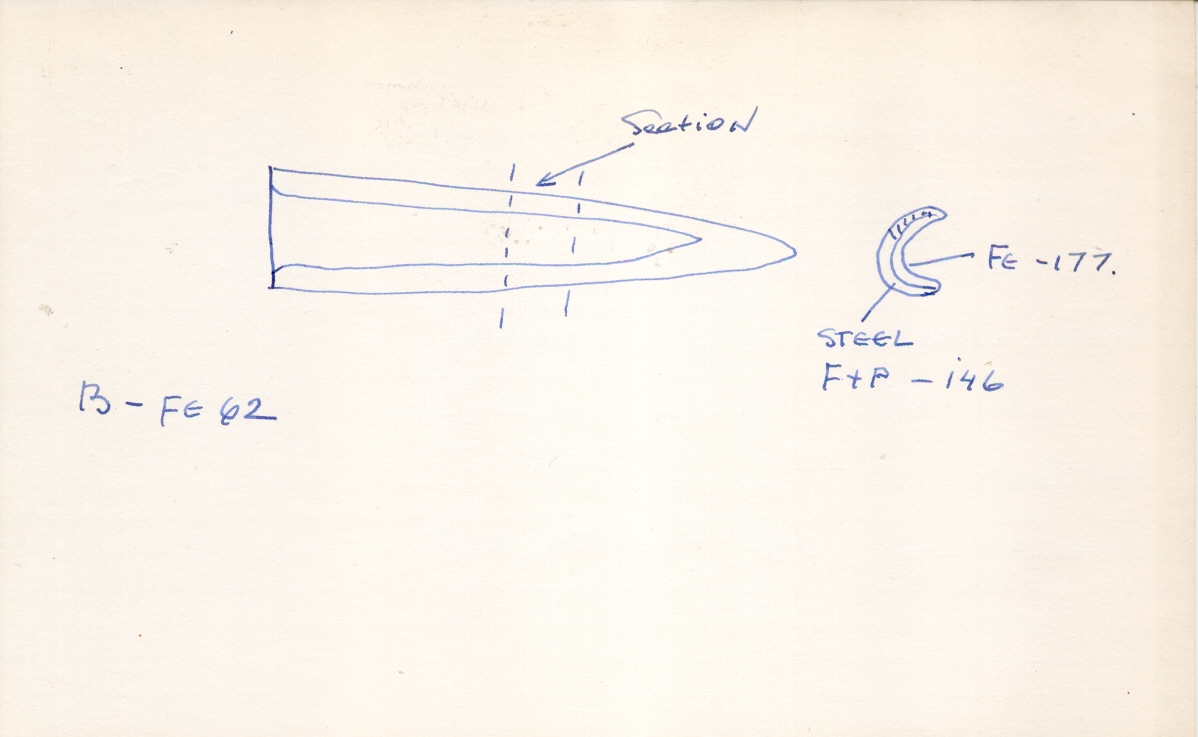 Section
Fe - 177.
STEEL
F+P - 146
B - Fe 62